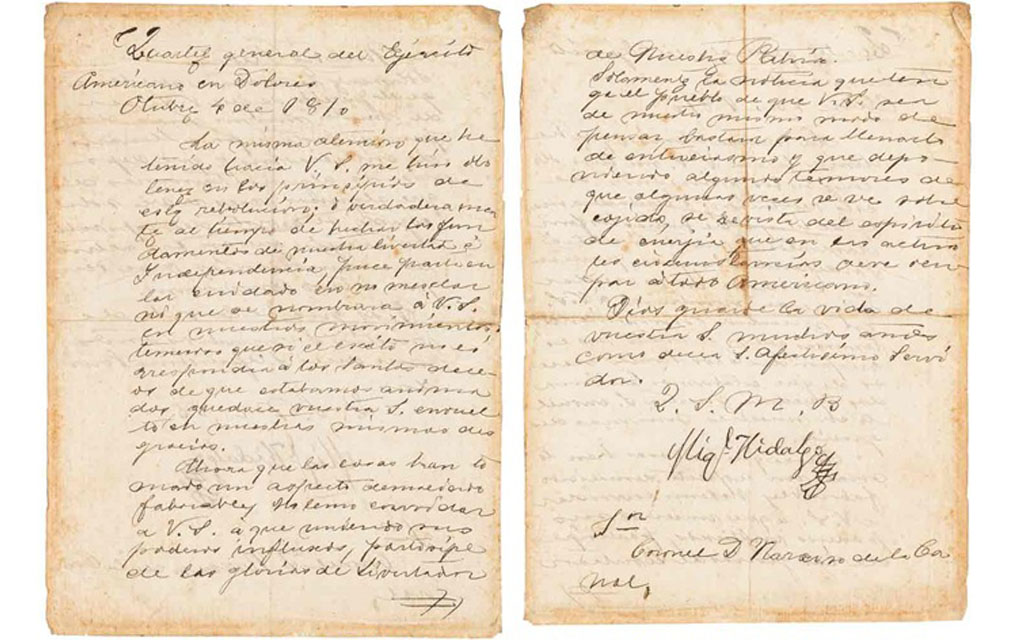 Quartel general del Ejército
Américano en Dolores
Otubre 4 de 1810
La misma atención que he
tenido hacia V. S. me hiso
tener en los prinsipios de
esta rebolución; ó verdaderamen
te al tiempo de hechar los fun
damentos de nuestra livertad é
Independencia,
lar cuidado en no mesclar
ni que se nombrara á V. S.
en nuestros movimientos,
temeroso que si el exito no co
rrespondia á los santos dece-
os de que estabamos anima
dos quedace vuestra S. envuel
to en nuestras mismas des
gracias.
Ahora que las cosas han to
mado un aspecto demaciado
faborable, no temo convidar
a V. S. á que uniendo sus
poderosos influxos, participe
de las glorias de Livertador
de Nuestra Patria.
Solamente la noticia que ten
ga el pueblo de que V. S. sea
de nuestro mismo modo de
pensar bastara para llenarlo
de entuciasmo y que depo-
niendo algunos temores de
que algunas veces se ve sobre
cojido, se revista del espiritu
de energia que en las actua
les circunstancias deve ocu
par á todo Américano.
Dios guarde la vida de
vuestra S. muchos años
como decea S. Afectisimo Servi
dor.
Q. S. M. B
Migl. Hidalgo
Sor
Coronel D Narciso de la Ca
nal,